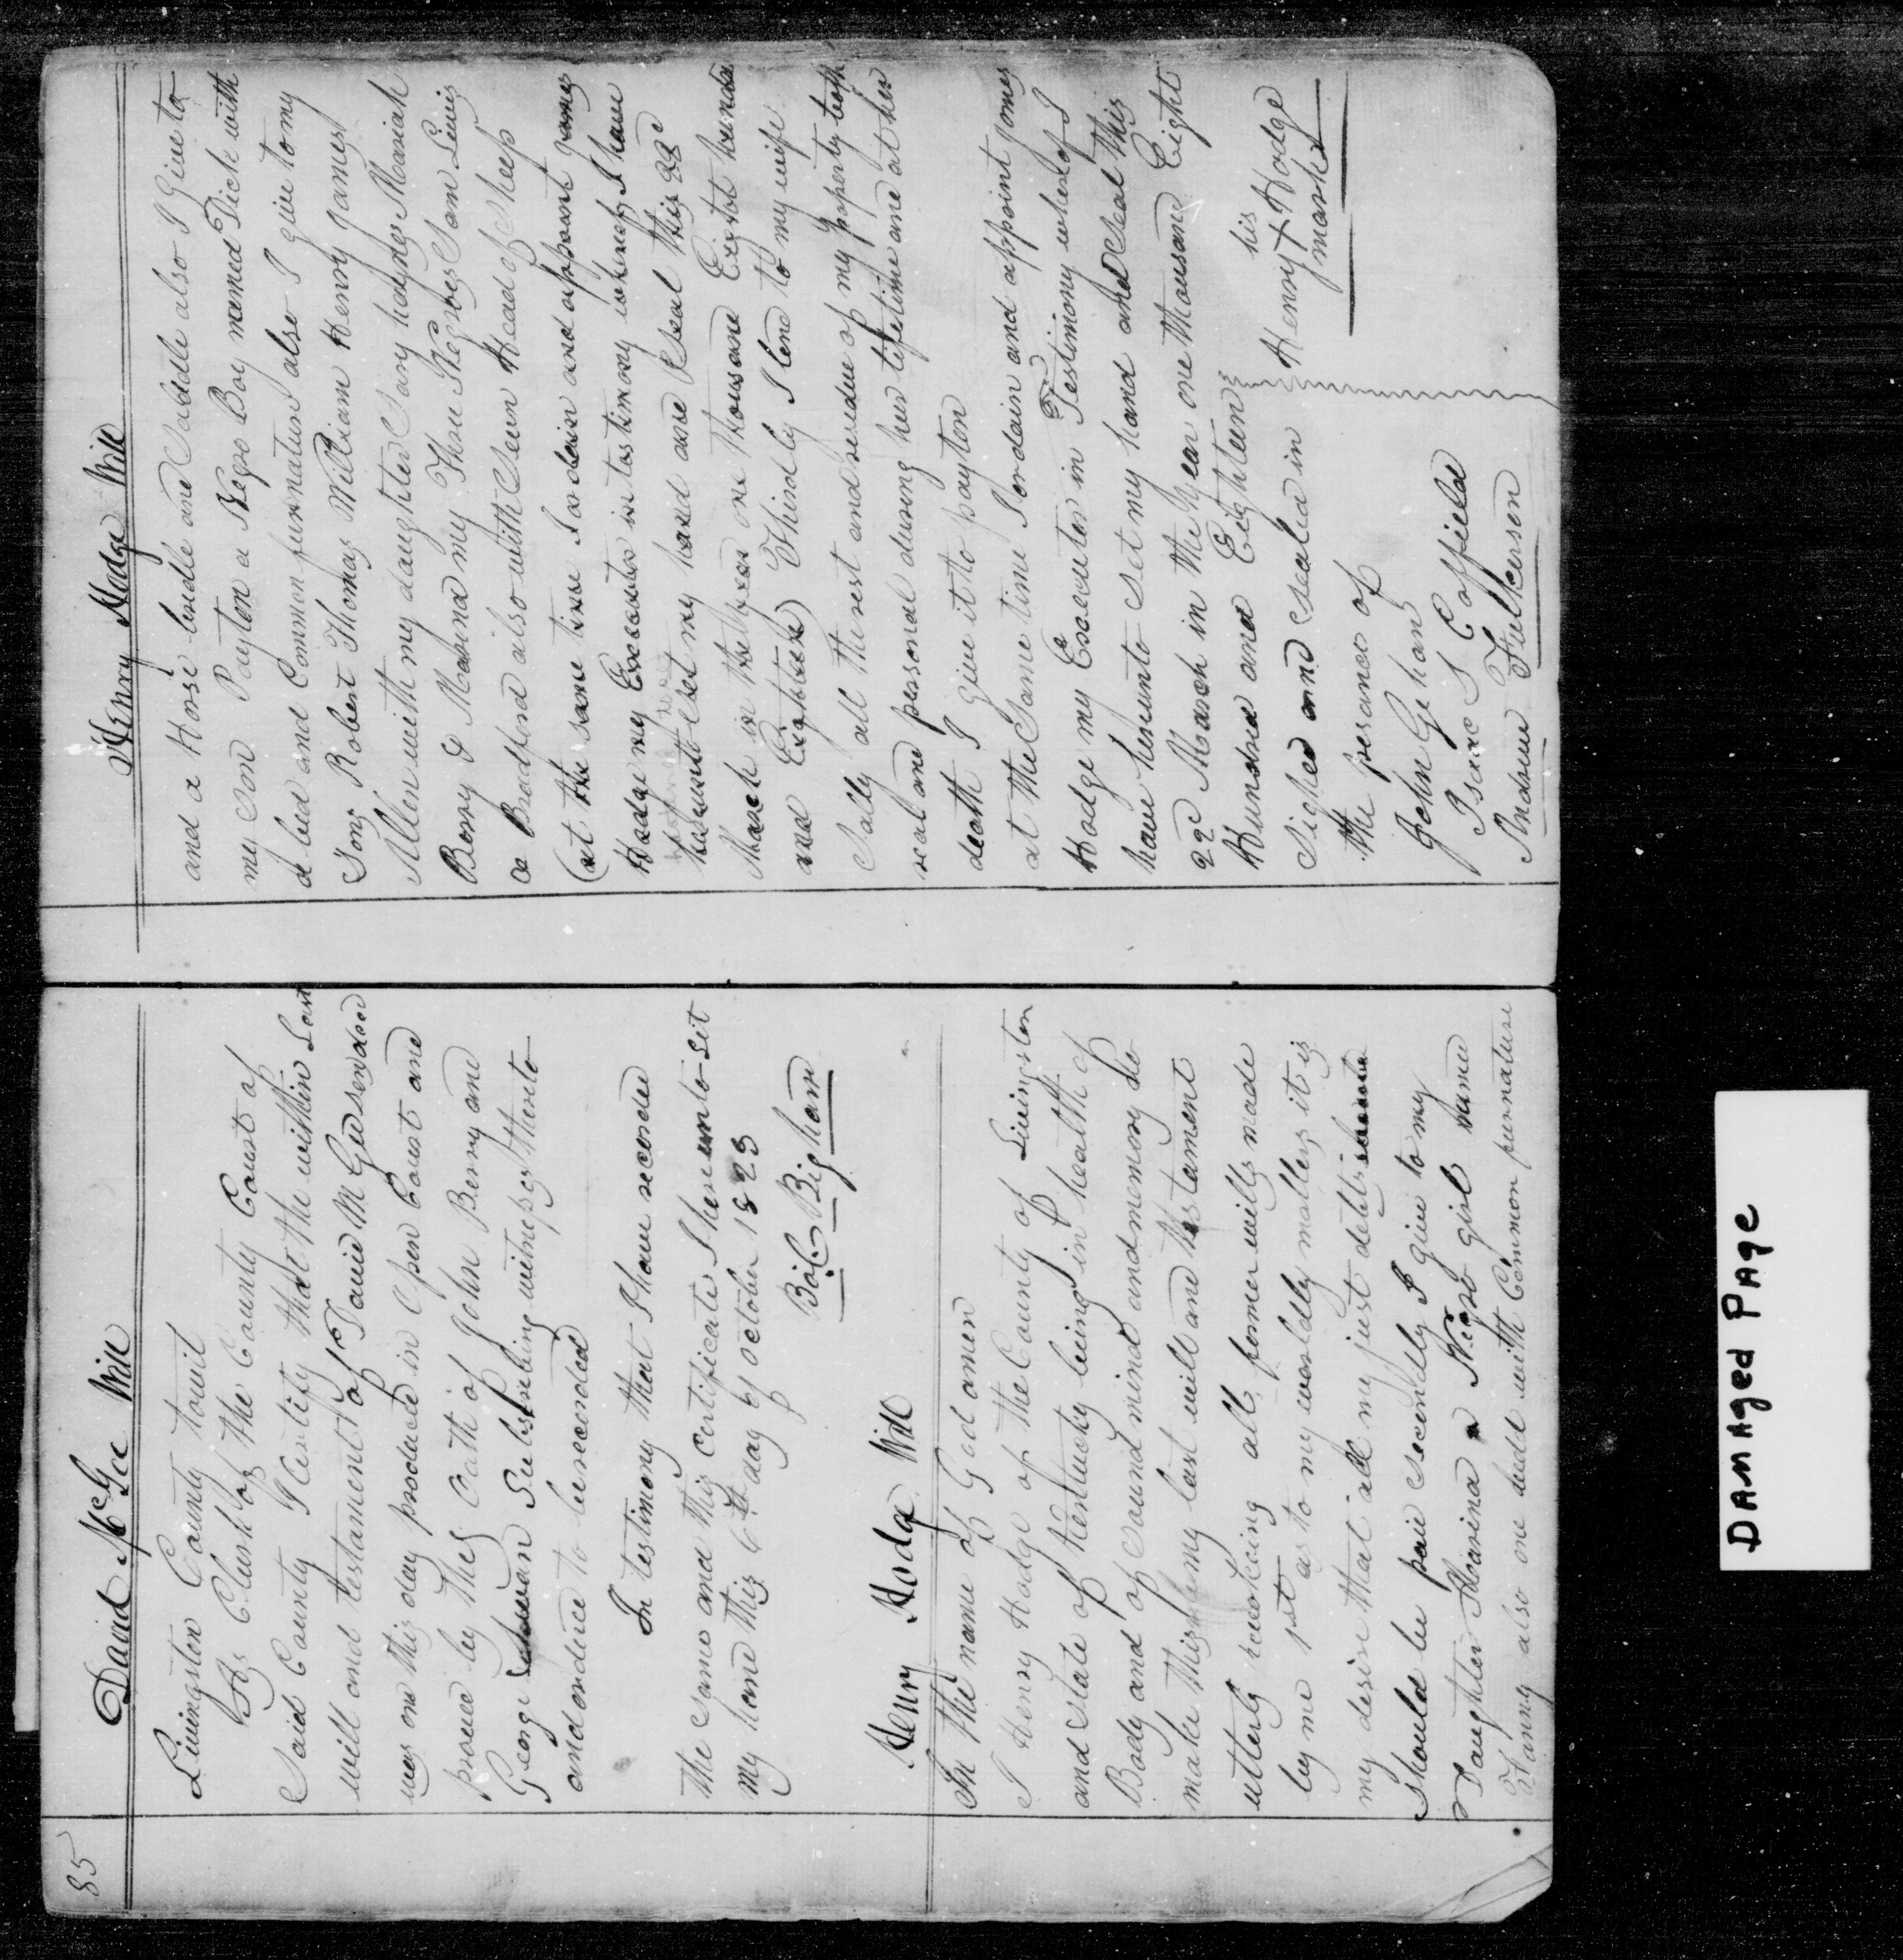 85
David McGee Will
Livingston County towit
Clerk of the County Court of
Said County I Certify that the within Last
will and testament of David McGee
was on this day produced in Open Court and
proved by the Oath of John Berry and
George Subscribing witnesses thereto
and ordered to be recorded
In testimony that I have recorded
the same and this Certificate I hereunto set
My hand this 6th day of October 1823
Bigham
Henry Hodge Will
In the name of God amen
I Henry Hodge of the County of Livingston
and State of Kentucky being in health of
Body and of Sound mind and memory do
make this my last will and testament
utterly revoking all former wills made
by me 1st as to my worldly matters it is
my desire that all my just debts
should be paid Secondly I give to my
Daughter a Negro girl name
Fanny also one bed with Common furnature
Henry Hodge Will
and a Horse bridle and Saddle also I Give to
my Son Payton a Negro Boy named Dick with
a bed and Common furnature also I give to my
Sons Robert Thomas William Henry James
Allen with my daughter Mariah
Berry & my Three Negroes Sam Linis
& Bradford also with Seven Head of Sheep
(at the same time I ordain and appoint James
Hodge my Executor in testimony whereof I have
hereunto Set my hand and Seal this 22d
March in the year one thousand Eight hundred
and Eighteen) Thirdly I lend to my wife
Sally all the rest and residue of my property both
real and personal during her lifetime and at her
death I give it to payton
at the Same time I ordain and appoint Jones
Hodge my Executor in Testimony whereof I
have hereunto Set my hand and Seal this
22d March in the year one thousand Eight
Hundred and Eighteen
Signed and Sealed in
the presance of
his
Henry X Hodge
mark
John Gehan
Isaac S Coffield
Andrew Fulkerson
Damaged Page